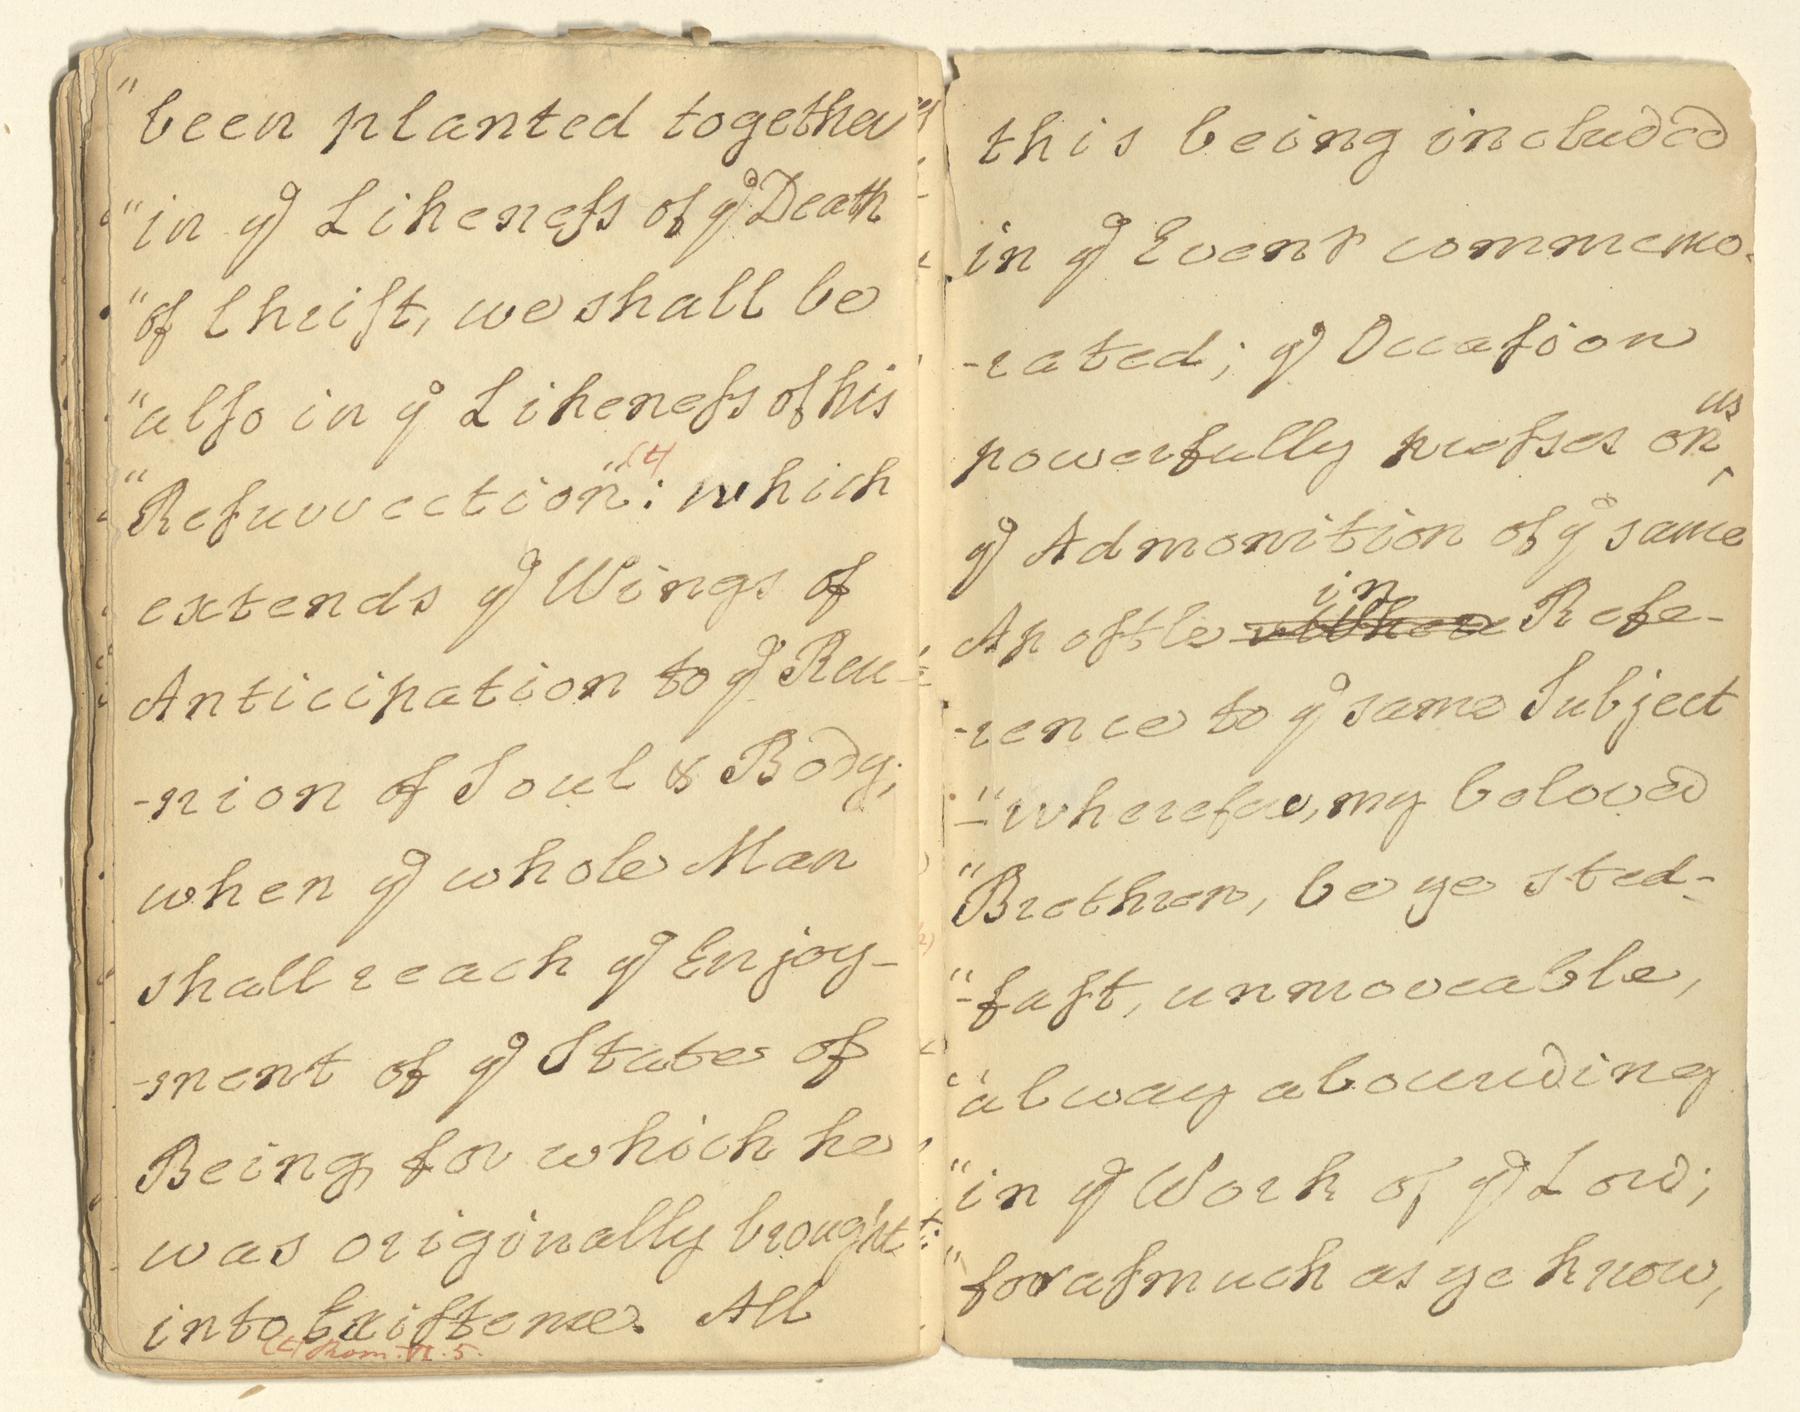 "been planted together
"in yͤ Likeneſs of yͤ Death
"of Chriſt, we shall be
"alſo in yͤ Likeneſs of his
"Reſurrection": (4) which
extends yͤ Wings of
Anticipation to yͤ Reu-
-nion of Soul & Body;
when yͤ whole Man
shall reach yͤ Enjoy-
-ment of yͤ State of
Being, for which he
was originally brought
into Exiſtence. All
(4) Rom. VI. 5.
this being included
in yͤ Event commemo-
-rated; yͤ Occaſion
powerfully preſses on ^ us
yͤ Admonition of yͤ same
Apoſtle in Refe-
-rence to yͤ same Subject
-"wherefore, my beloved
"Brethren, be ye sted-
"-faſt, unmoveable,
"alway abounding
"in yͤ Work of yͤ Lord;
"for aſmuch as ye know,